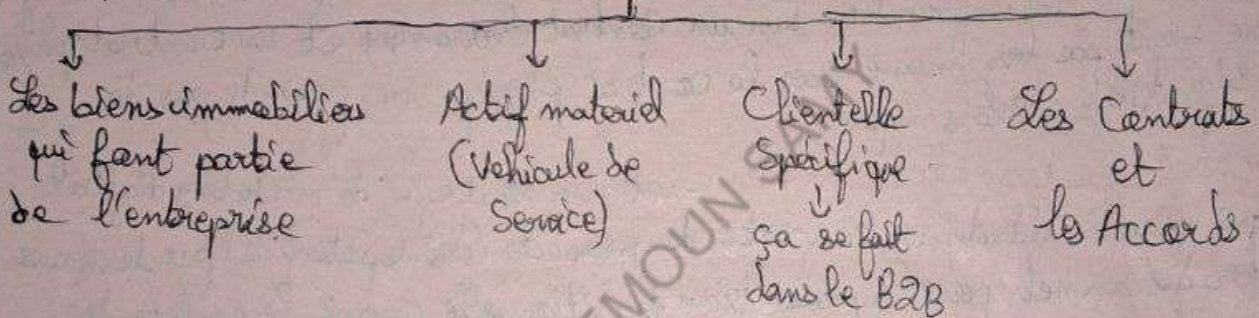 Les biens immobiliers
qui font partie
de l'entreprise
Actif materiel
(Vehicule de
Service)
Clientelle
Spécifique
ça se fait
dans le B2B
Les Contrats
et
les Accords